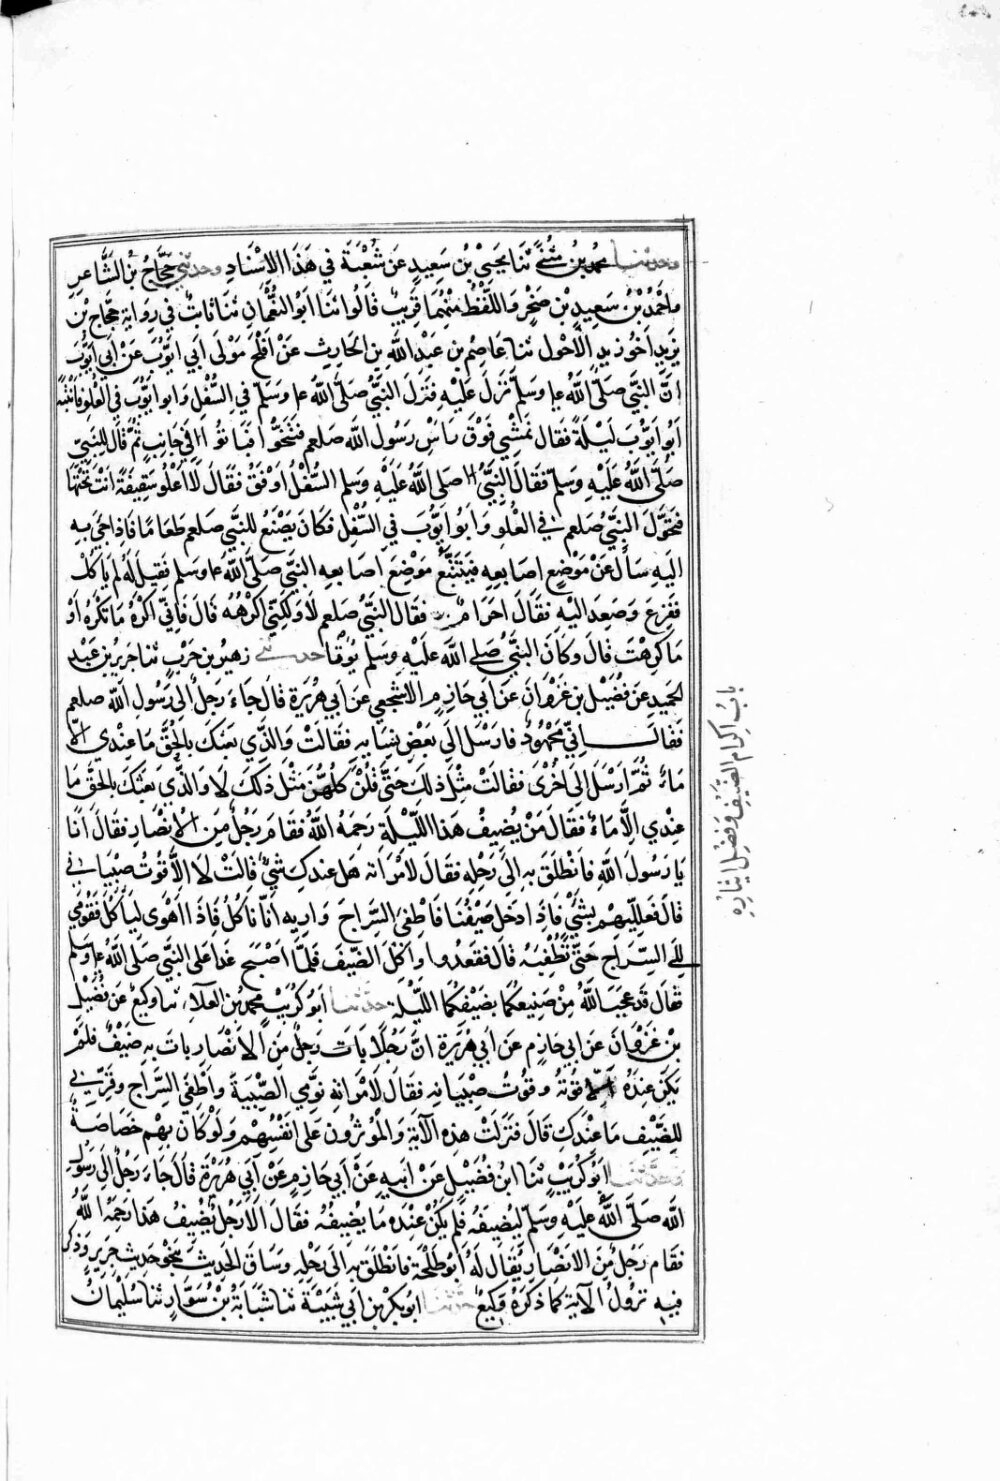 وحدثنا محمد بن مثنى ثنا يحيى بن سعيد عن شعبة في هذا الاسناد وحدثني حجاج بن الشاعر
واحمد بن سعيد بن صخر واللفظ منهما قريب قالوا ثنا ابو النعمان ثنا ثابت في رواية حجاج بن
يزيد اخو زيد الاحول ثنا عاصم بن عبد الله بن الحارث عن افلح مولى ابي ايوب عن ابي ايوب
ان النبي صلى الله ع‍ا وسلم نزل عليه فنزل النبي صلى الله ع‍ا وسلم في السفل وابو ايوب في العلو فانتبه
ابو ايوب ليلة فقال نمشي فوق راس رسول الله صلعم فتنحوا فباتوا في جانب ثم قال للنبي
صلى الله عليه وسلم فقال النبي صلى الله عليه وسلم السفل اوفق فقال لا اعلو سقيفة انت تحتها
فتحول النبي صلعم في العلو وابو ايوب في السفل فكان يصنع للنبي صلعم طعاما فاذا جيء به
اليه سال عن موضع اصابعه فيتتبع موضع اصابعه النبي صلى الله ع‍ا وسلم فقيل له لم ياكل
ففزع وصعد اليه فقال احرام فقال النبي صلعم لا ولكني اكرهه قال فاني اكره ما تكره او
ما كرهت قال وكان النبي صلى الله عليه وسلم يوتى حدثني زهير بن حرب ثنا جرير بن عبد
الحميد عن فضيل بن غزوان عن ابي حازم الاشجعي عن ابي هريرة قال جاء رجل الى رسول الله صلعم
فقال اني مجهود فارسل الى بعض نسايه فقالت والذي بعثك بالحق ما عندي الا
ماء ثم ارسل الى اخرى فقالت مثل ذلك حتى قلن كلهن مثل ذلك لا والذي بعثك بالحق ما
عندي الا ماء فقال من يضيف هذا الليلة رحمه الله فقام رجل من الانصار فقال انا
يا رسول الله فانطلق به الى رحله فقال لامراته هل عندك شيء قالت لا الا قوت صبياني
قال فعلليهم بشيء فاذا دخل ضيفنا فاطفئ السراج واريه انا ناكل فاذا اهوى لياكل فقومي
الى السراج حتى تطفيه قال فقعدوا واكل الضيف فلما اصبح غدا على النبي صلى الله ع‍ا وسلم
فقال قد عجب الله من صنيعكما بضيفكما الليلة حدثنا ابو كريب محمد بن العلاء ثنا وكيع عن فضيل
بن غزوان عن ابي حازم عن ابي هريرة ان رجلا بات رجل من الانصار بات به ضيف فلم
يكن عنده الا قوته وقوت صبيانه فقال لامراته نومي الصبية واطفي السراج وقربي
للضيف ما عندك قال فنزلت هذه الاية والموثرون على انفسهم ولو كان بهم خصاصة
وحدثنا ابو كريب ثنا ابن فضيل عن ابيه عن ابي حازم عن ابي هريرة قال جاء رجل الى رسول
الله صلى الله عليه وسلم ليضيفه فلم يكن عنده ما يضيفه فقال الا رجل يضيف هذا رحمه الله
فقام رجل من الانصار يقال له ابو طلحة فانطلق به الى رحله وساق الحديث بنحو حديث جرير وذكر
فيه نزول الاية كما ذكره وكيع حدثنا ابو بكر بن ابي شيبة ثنا شبابة بن سوار ثنا سليمان
باب اكرام الضيف وفضل ايثاره